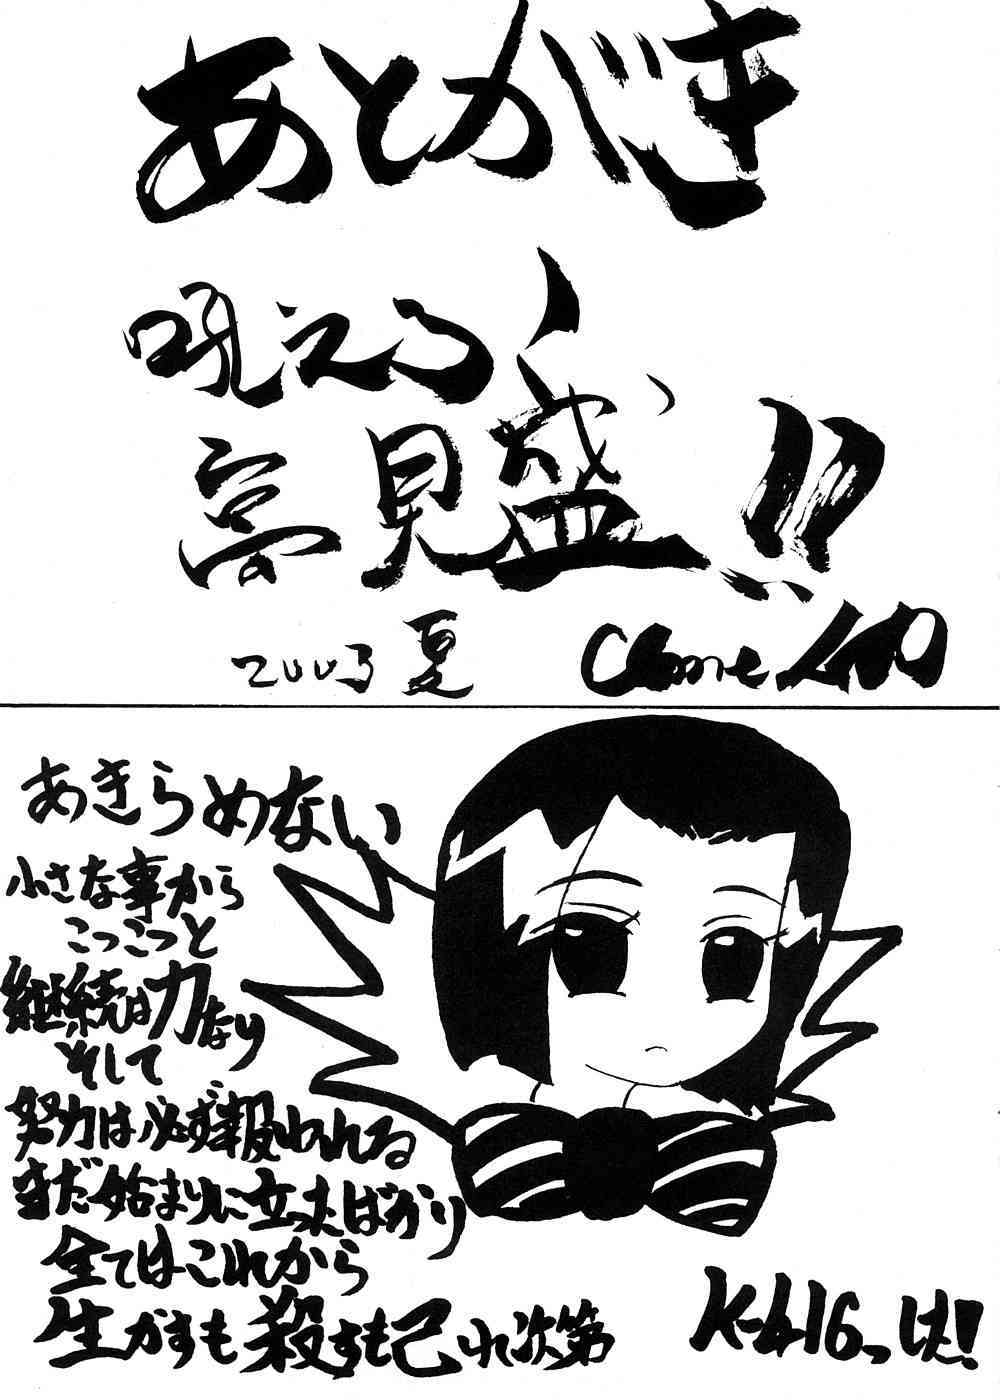 あとがき
吼えろ
夢見盛!!
2003 夏
あきらめない
小さな事から
こつこつと
継続は力なり
そして
努力は必ず報われる
まだ始まりに立ったばかり
全てはこれから
生かすも殺すも己れ次第